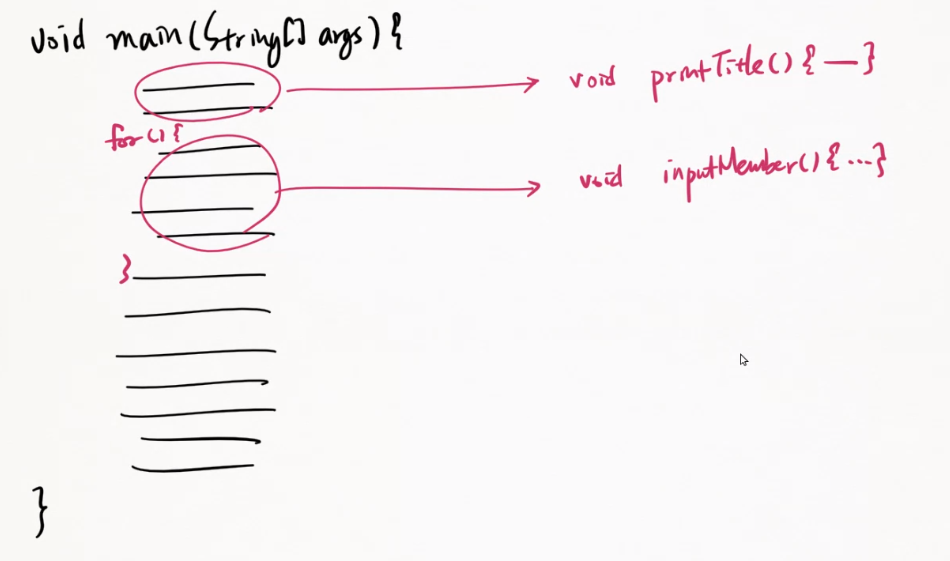 void main(String[] args) {
void printTitle() { — }
for () {
void inputMember() { ... }
}
}